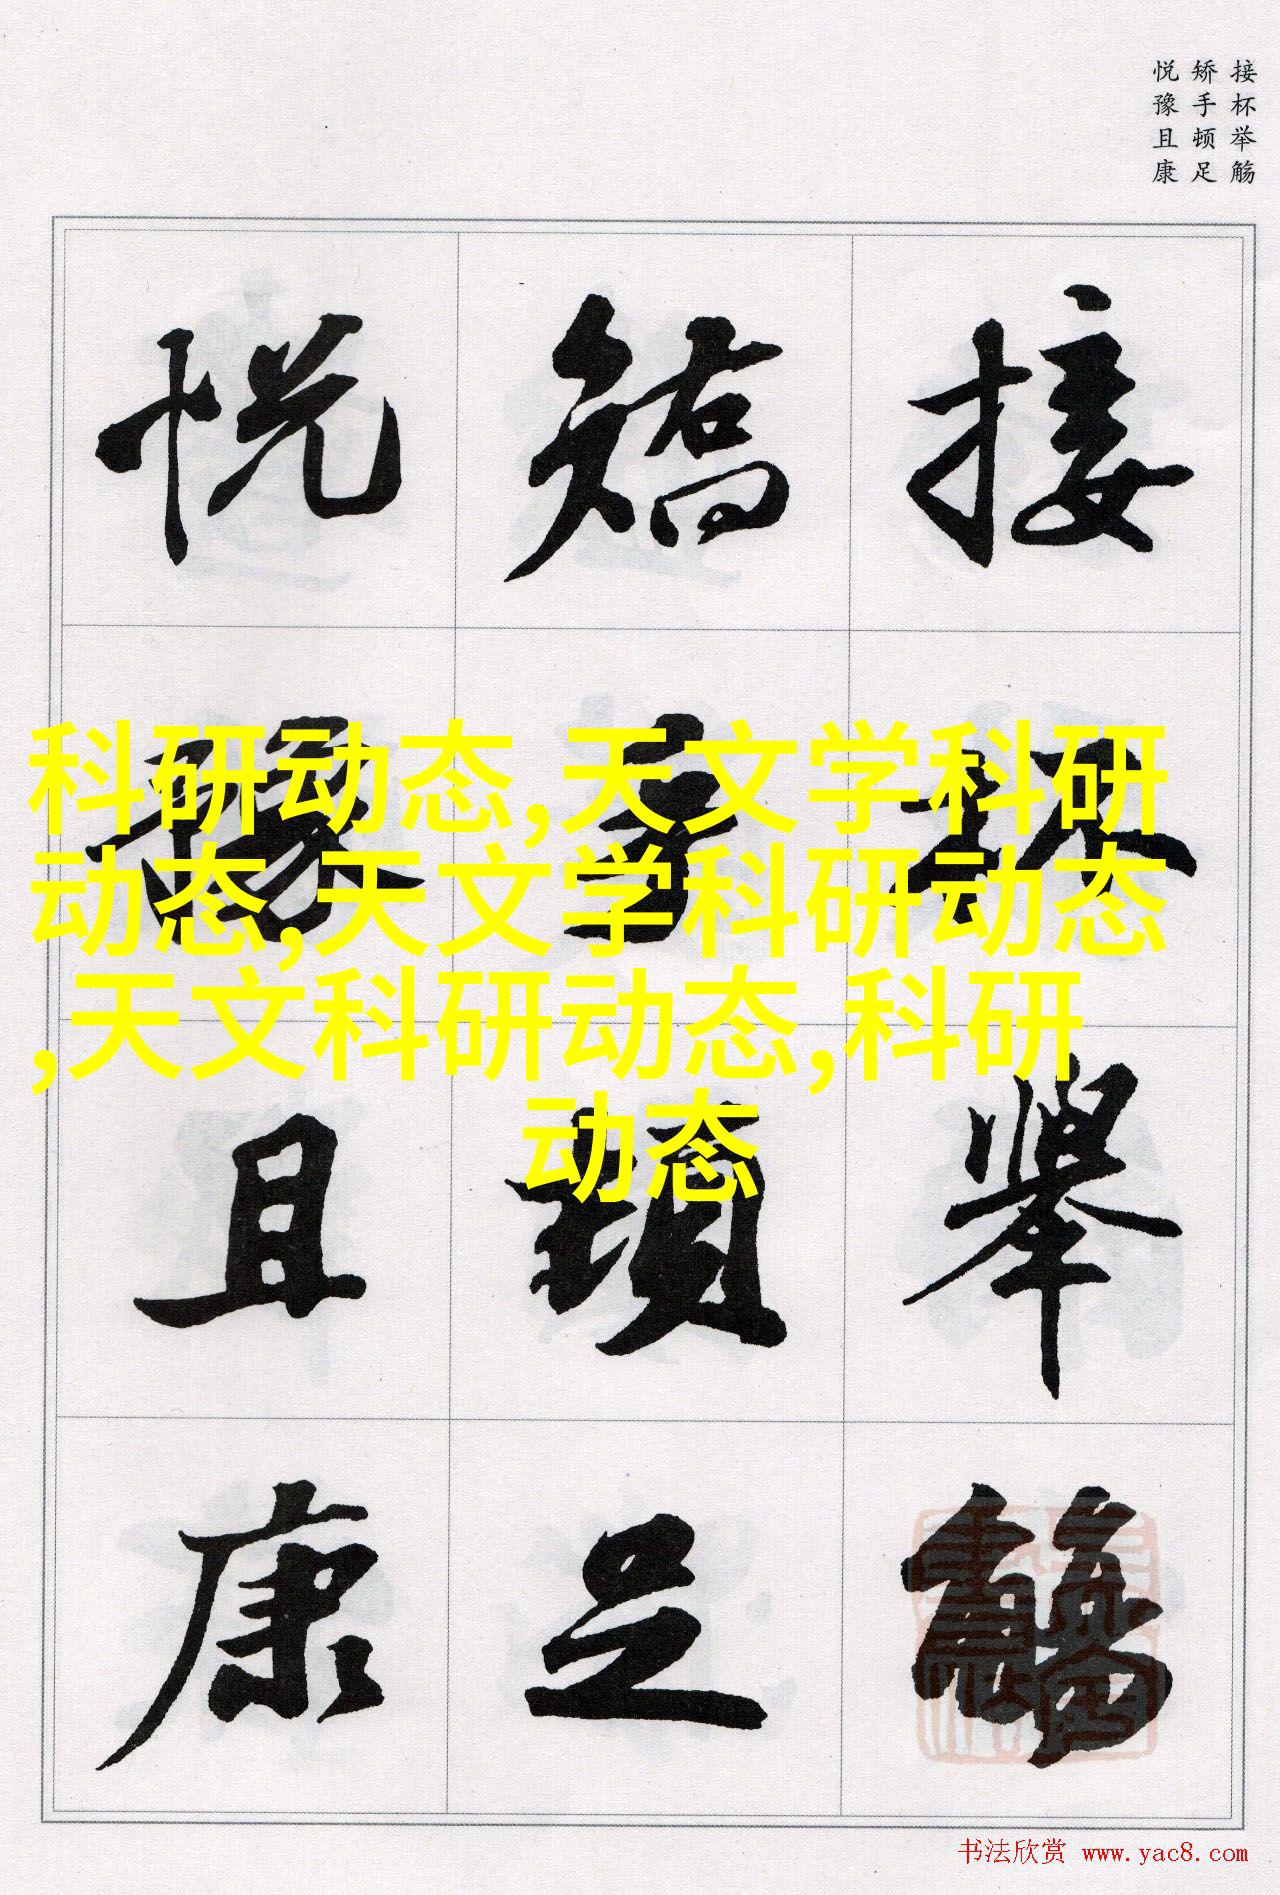 接杯举觞
矫手顿足
悦豫且康
接杯舉觴
矯手頓足
悦豫且康
科研动态,天文学科研
动态,天文学科研动态
,天文科研动态,科研
动态
书法欣赏 www.yac8.com